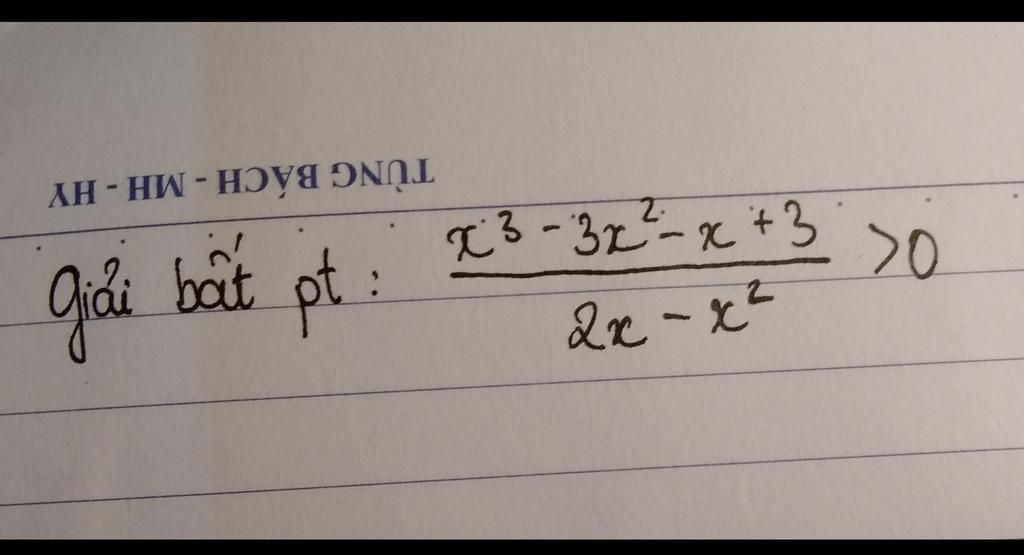 TÙNG BÁCH - MH - HY
Giải bất pt : \frac{x^3 - 3x^2 - x + 3}{2x - x^2} > 0